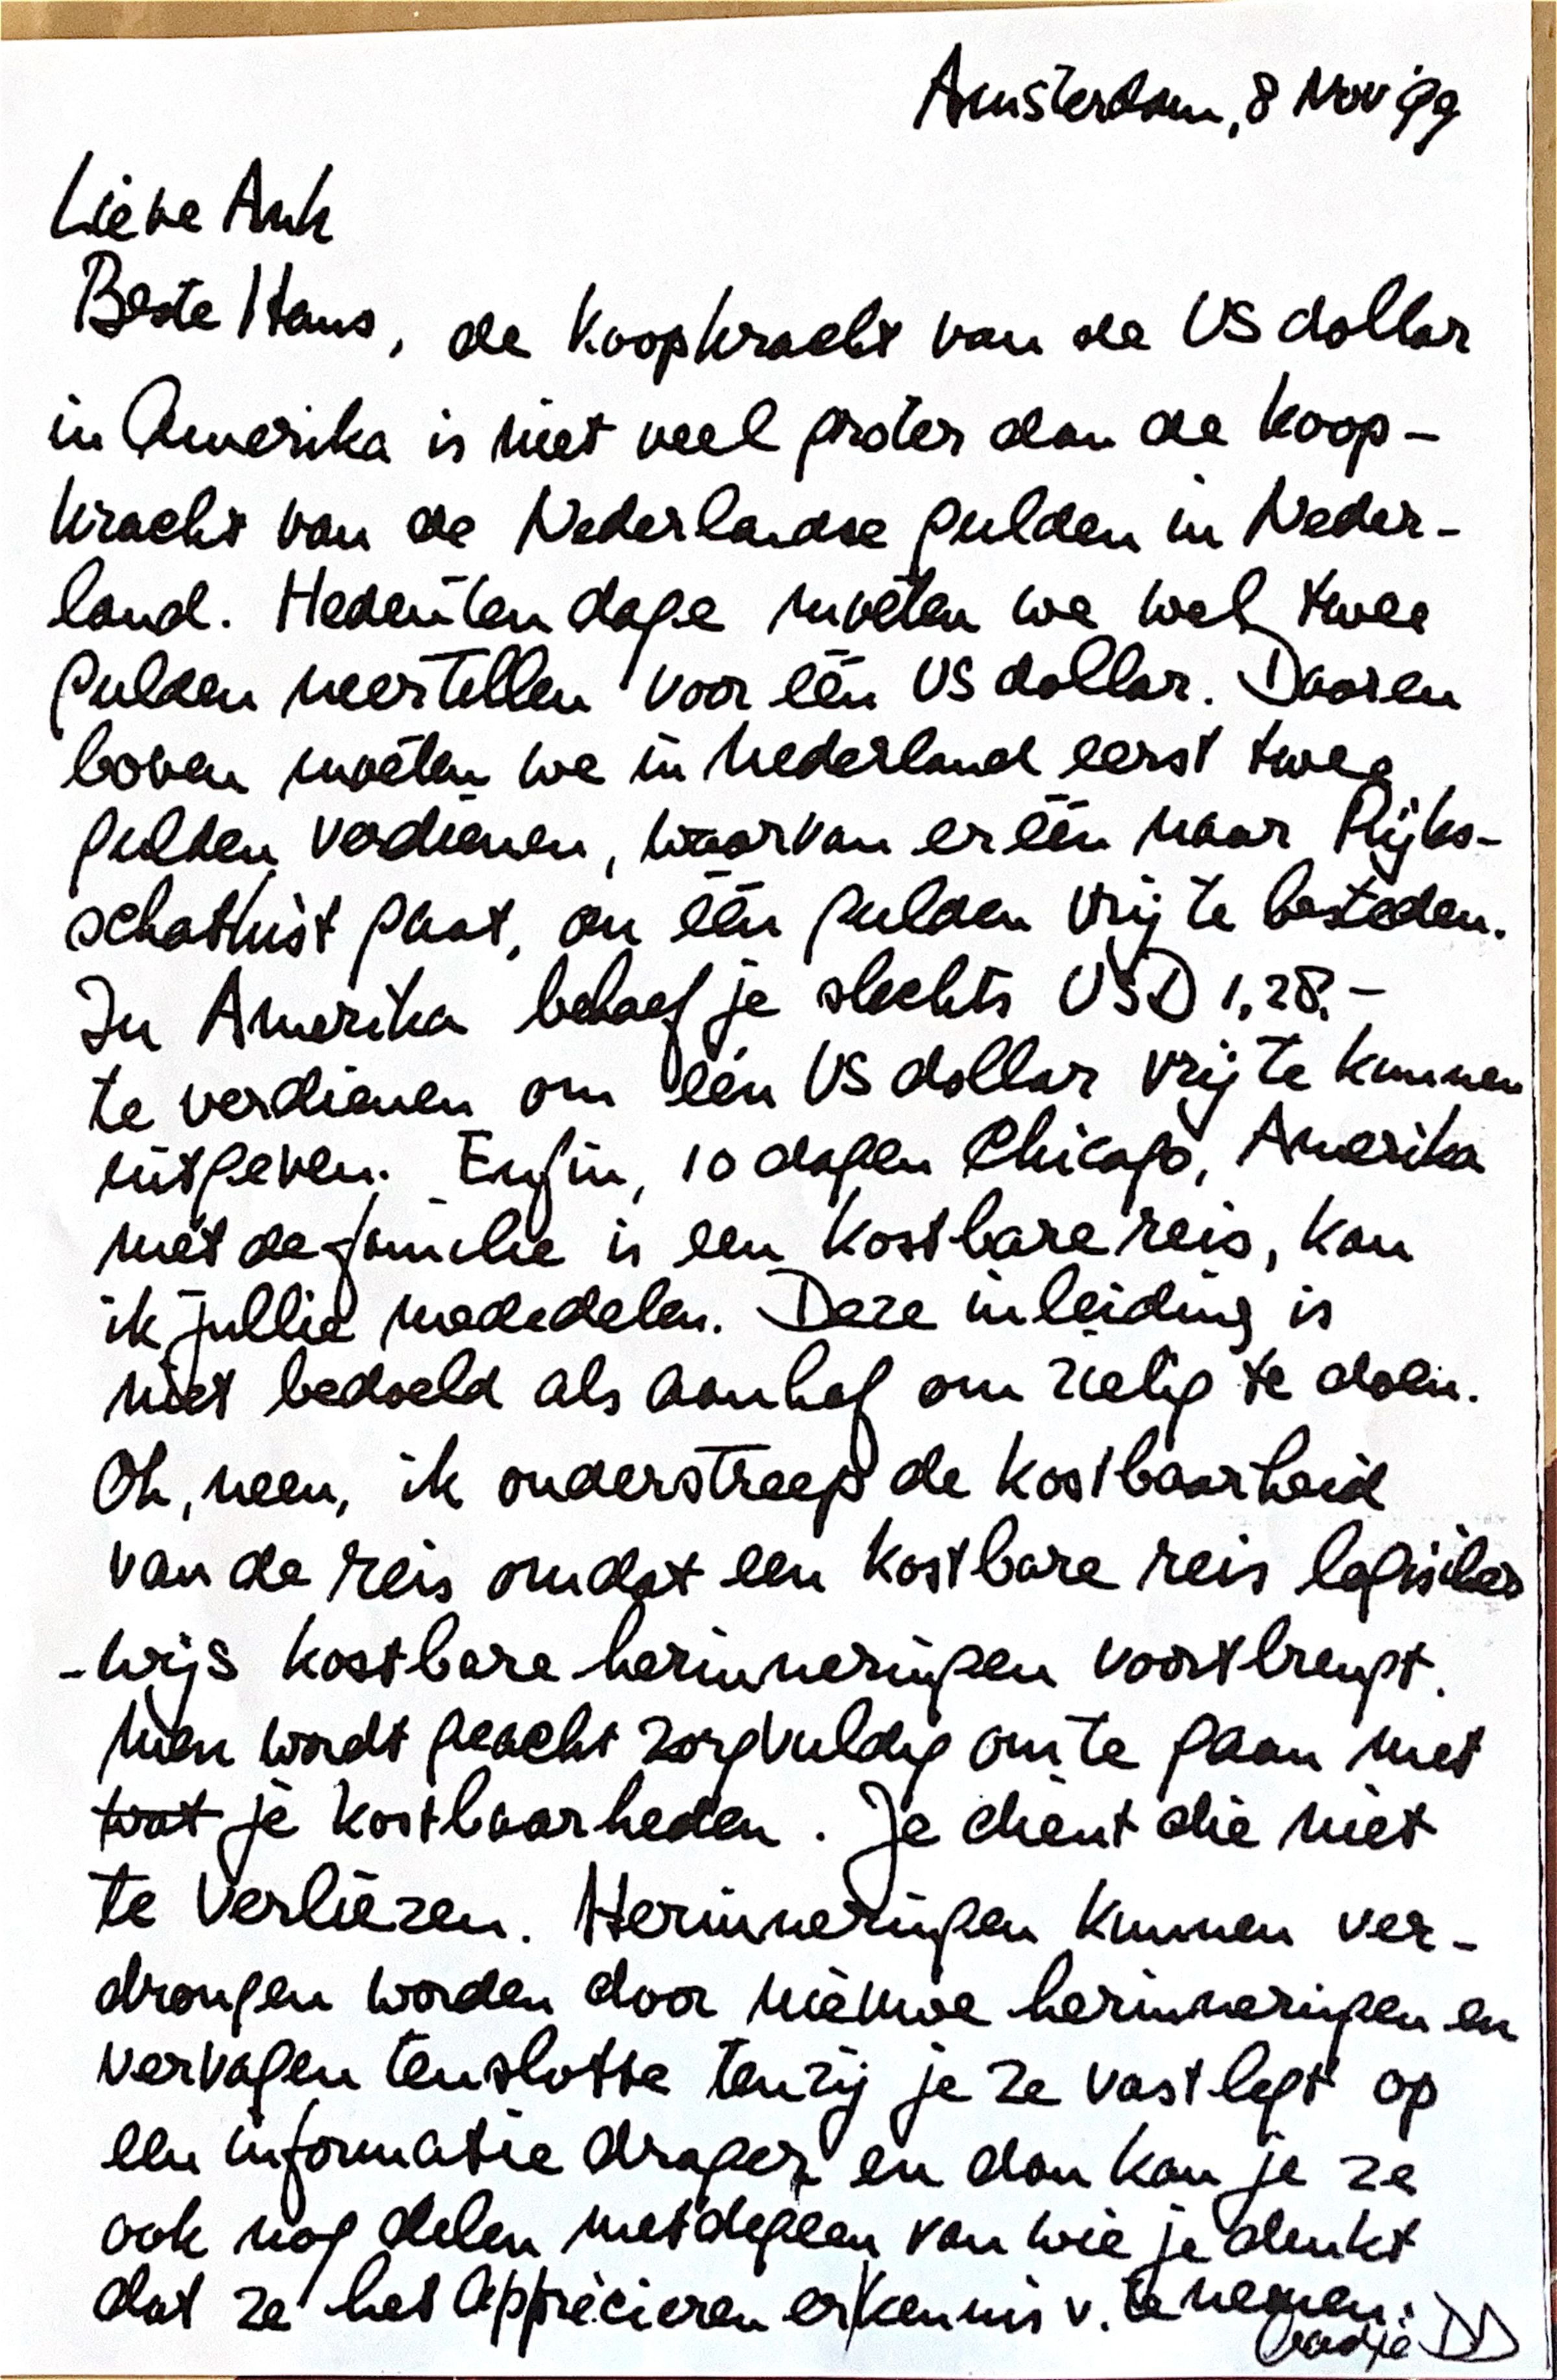 Amsterdam, 8 Nov '99
Lieve Ank
Beste Hans, de koopkracht van de US dollar
in Amerika is niet veel groter dan de koop-
kracht van de Nederlandse gulden in Neder-
land. Hedentendage moeten we wel twee
gulden neertellen voor één US dollar. Daaren
boven moeten we in Nederland eerst twee
gulden verdienen, waarvan er één naar Rijks-
schatkist gaat, om één gulden vrij te besteden.
In Amerika behoef je slechts USD 1,28.-
te verdienen om één US dollar vrij te kunnen
uitgeven. Enfin, 10 dagen Chicago, Amerika
met de familie is een kostbare reis, kan
ik jullie mededelen. Deze inleiding is
niet bedoeld als aanhef om zielig te doen.
Oh, neen, ik onderstreep de kostbaarheid
van de reis omdat een kostbare reis logischer
-wijs kostbare herinneringen voortbrengt.
Men wordt geacht zorgvuldig om te gaan met
wat je kostbaarheden. Je dient die niet
te verliezen. Herinneringen kunnen ver-
drongen worden door nieuwe herinneringen en
vervagen tenslotte tenzij je ze vastlegt op
een informatie drager en dan kan je ze
ook nog delen met degeen van wie je denkt
dat ze het appreciëren er kennis v. te nemen.